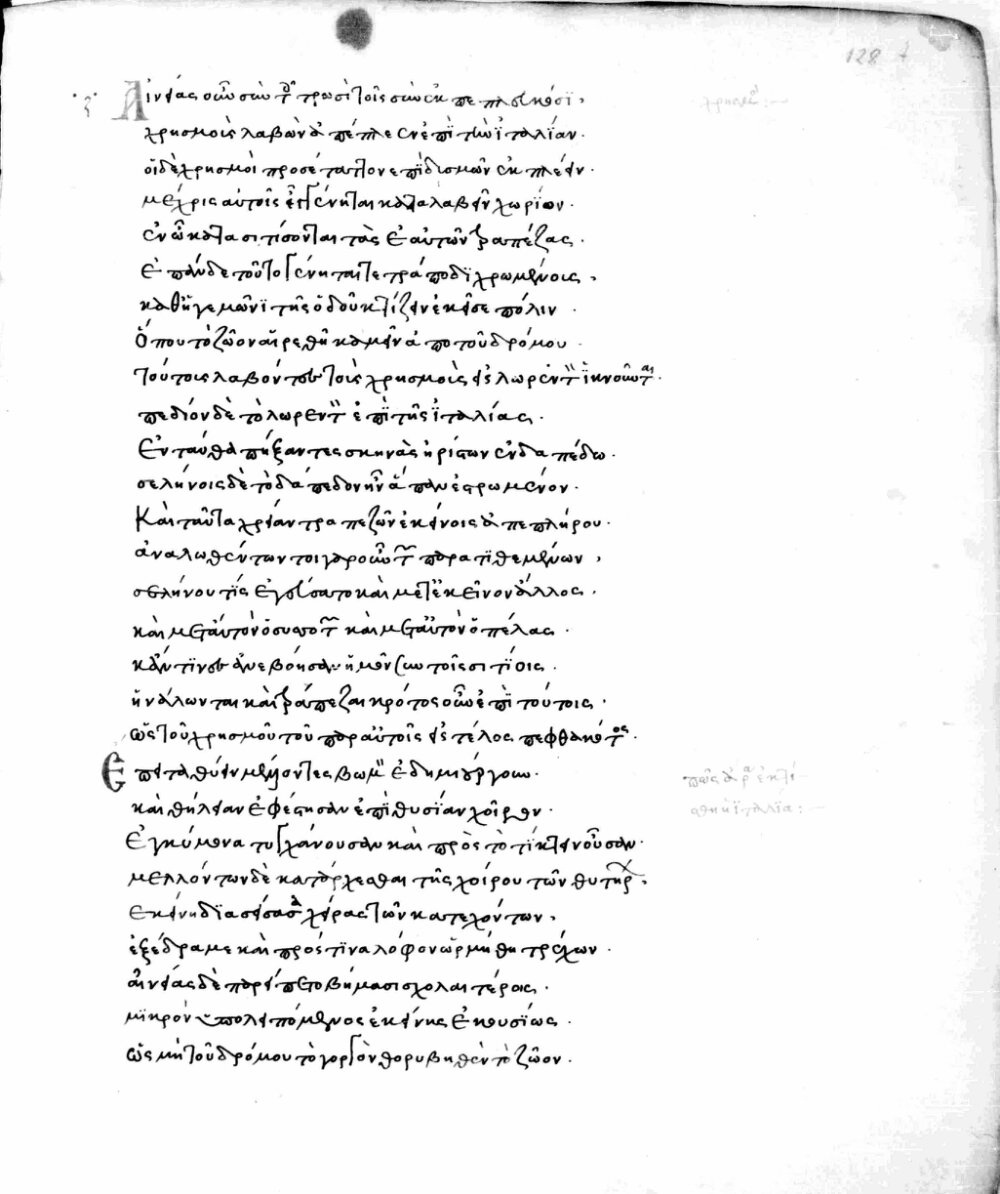 128
Αἰνείας οὖν σὺν τοῖς Τρωσὶ τοῖς σὺν ἐκπεπλευκόσι,
χρησμοὺς λαβὼν ἀπέπλεεν ἐπὶ τὴν Ἰταλίαν.
οἱ δὲ χρησμοὶ προσέταττον ἐπὶ δισμῶν ἐκπλέειν.
μέχρις αὐτοῖς γένηται καταλαβεῖν χωρίον.
ἐν ᾧ κατασιτίσονται τὰς ἑαυτῶν τραπέζας.
ἐπὰν δὲ τοῦτο γένηται τετράποδι χρωμένοις,
καθηγεμῶνι τῆς ὁδοῦ κτίζειν ἐκεῖσε πόλιν.
ὅπου τὸ ζῷον αἱρεθῇ καμεῖν ἀπὸ τοῦ δρόμου.
τούτους λαβόντες τοὺς χρησμοὺς εἰς Λωρεντὸν ἱκνοῦνται.
πεδίον δὲ τὸ Λωρεντὸν ἐπὶ τῆς Ἰταλίας.
Ἐνταῦθα πήξαντες σκηνὰς ἠρίστων ἐν δαπέδῳ.
σελήνοις δὲ τὸ δάπεδον ἦν ἅπαν ἐστρωμένον.
Καὶ ταῦτα χρείαν τραπεζῶν ἐκείνοις ἀπεπλήρου.
ἀναλωθέντων τοιγαροῦν τῶν παρατιθεμένων,
σελήνου τίς ἐγεύσατο καὶ μετ' ἐκεῖνον ἄλλος.
καὶ μετ' αὐτὸν ὁ συμπότης καὶ μετ' αὐτὸν ὁ πέλας.
κἄν τινες ἀνεβόησαν ἡμῶν σὺν τοῖς σιτίοις.
ἠνάλωνται καὶ τράπεζαι κρότος οὖν ἐπὶ τούτοις.
ὡς τοῦ χρησμοῦ τοῦ παρ' αὐτοῖς εἰς τέλος πεφθακότος.
Ἔπειτα θύειν μέλλοντες βωμὸν ἐδημιούργουν.
καὶ θήλειαν ἐφέστησαν ἐπὶ θυσίαν χοῖρον.
Ἐγκύμονα τυγχάνουσαν καὶ πρὸς τὸ τίκτειν οὖσαν.
μελλόντων δὲ κατάρχεσθαι τῆς χοίρου τῶν θυτήρων,
ἐκείνη διασείσασα χεῖρας τῶν κατεχόντων,
ἐξέδραμε καὶ πρός τινα λόφον ὡρμήθη τρέχων.
Αἰνείας δὲ παρείπετο βήμασι σχολαιτέροις.
μικρὸν ὑπολειπόμενος ἐκείνης ἑκουσίως.
ὡς μὴ τοῦ δρόμου τὸ γοργὸν θορυβηθὲν τὸ ζῷον.
πῶς ἄρα ἐκτί
σθη ἡ ἰταλία: